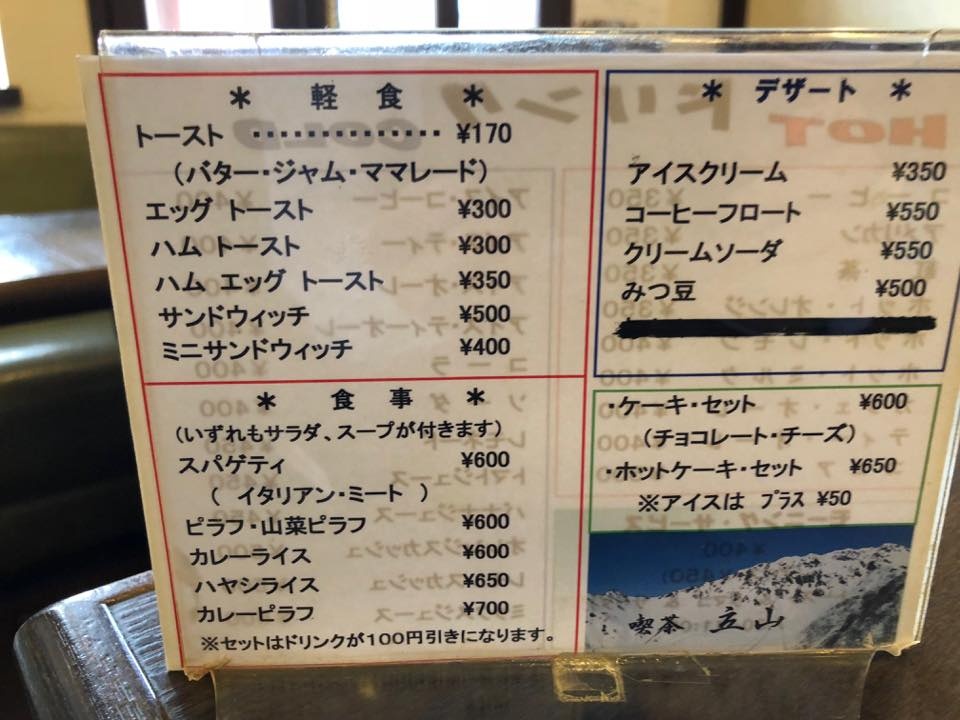 * 軽食 *
トースト ・・・・・・・・・・・・・・ ¥170
（バター・ジャム・ママレード）
エッグ トースト ¥300
ハム トースト ¥300
ハム エッグ トースト ¥350
サンドウィッチ ¥500
ミニサンドウィッチ ¥400
* 食事 *
（いずれもサラダ、スープが付きます）
スパゲティ ¥600
（ イタリアン・ミート ）
ピラフ・山菜ピラフ ¥600
カレーライス ¥600
ハヤシライス ¥650
カレーピラフ ¥700
※セットはドリンクが100円引きになります。
* デザート *
アイスクリーム ¥350
コーヒーフロート ¥550
クリームソーダ ¥550
みつ豆 ¥500
・ケーキ・セット ¥600
（チョコレート・チーズ）
・ホットケーキ・セット ¥650
※アイスは プラス ¥50
喫茶 立山